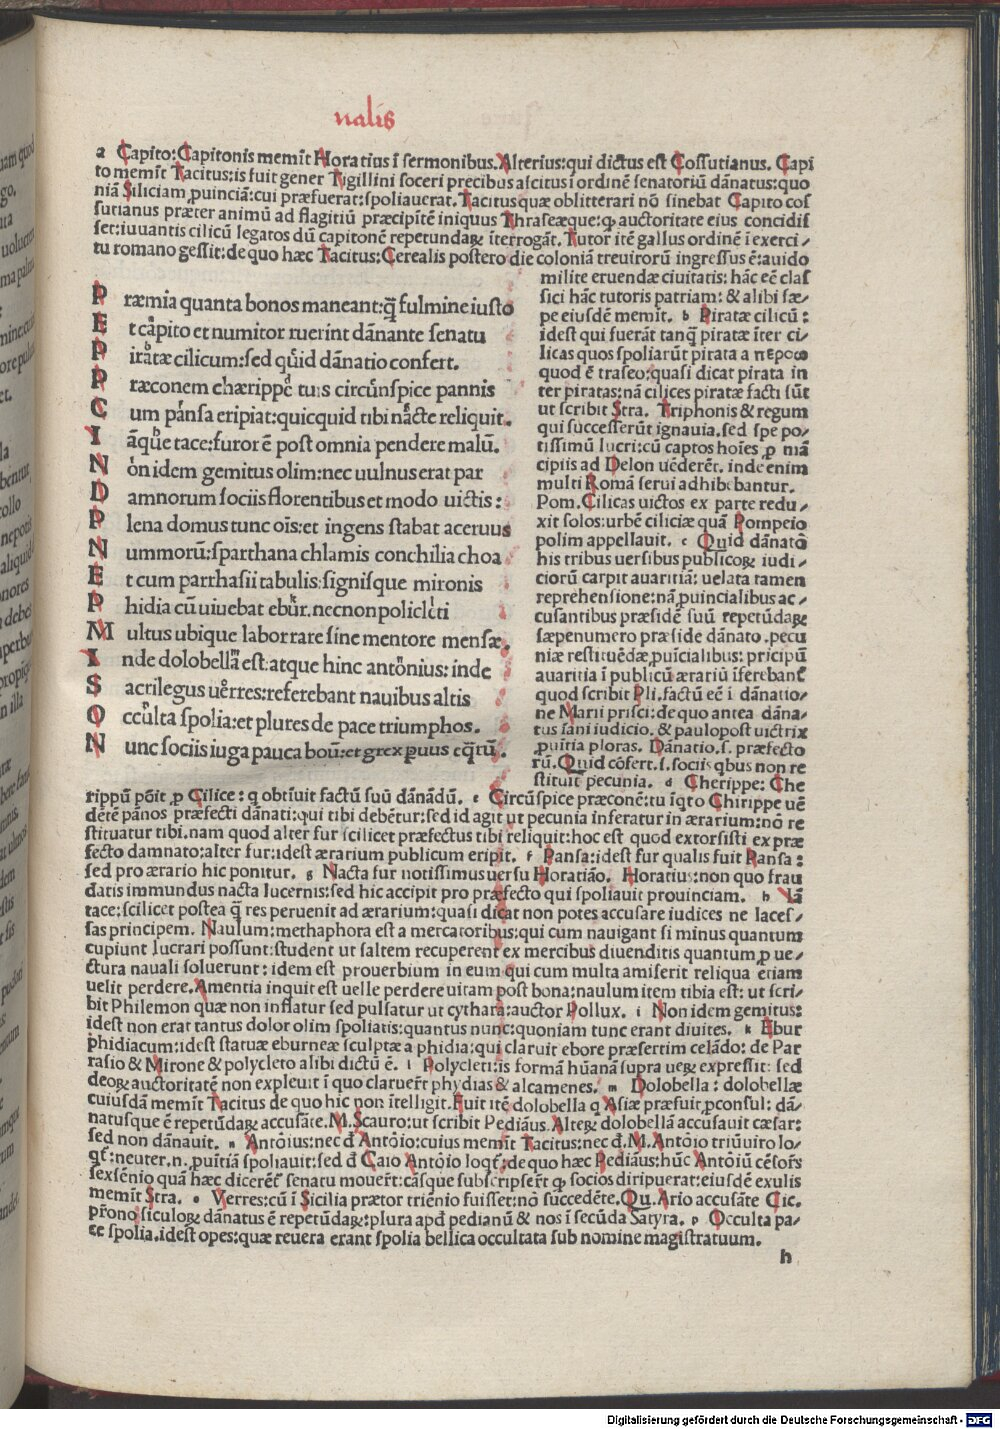 nalis
a Capito:Capitonis memĩt Horatius ĩ sermonibus.Alterius:qui dictus est Cossutianus. Capi
to memĩt Tacitus:is fuit gener Tigillini soceri precibus ascitus ĩ ordinẽ senatoriũ dãnatus:quo
niã Siliciam ꝓuinciã:cui præfuerat:spoliauerat.Tacitus quæ oblitterari nõ sinebat Capito cos
sutianus præter animũ ad flagitiũ præcipitẽ iniquus Thraseæque:ꝙ auctoritate eius concidis
set:iuuantis cilicũ legatos dũ capitonẽ repetundaꝝ ĩterrogãt. Tutor itẽ gallus ordinẽ ĩ exerci/
tu romano gessit:de quo hæc Tacitus:Cerealis postero die coloniã treuirorũ ingressus ẽ:auido
milite eruendæ ciuitatis: hãc eẽ clas
sici hãc tutoris patriam: & alibi sæ/
pe eiusdẽ memit. b Piratæ cilicũ:
idest qui fuerãt tanq̃ piratæ ĩter ci/
licas quos spoliarũt pirata a περοω
quod ẽ traseo:quasi dicat pirata in
ter piratas:nã cilices piratæ facti sũt
ut scribit Stra. Triphonis & regum
qui successerũt ignauia.sed spe po/
tissimũ lucri:cũ captos hoĩes ꝓ mã
cipiis ad Delon uẽderẽt. inde enim
multi Romã serui adhibebantur.
Pom.Cilicas uictos ex parte redu/
xit solos:urbẽ ciliciæ quã Pompeio
polim appellauit. c Quid dãnatõ
his tribus uersibus publicoꝝ iudi/
ciorũ carpit auaritiã: uelata tamen
reprehensione:nã ꝓuincialibus ac/
cusantibus præsidẽ suũ repetũdaꝝ
sæpenumero præside dãnato.pecu
niæ restituẽdæ ꝓuĩcialibus: pricipũ
auaritia ĩ publicũ ærariũ ĩferebant̃
quod scribit Pli.factũ eẽ ĩ dãnatio/
ne Marii prisci:de quo antea dãna/
tus ĩani iudicio. & paulopost uictrix
ꝓuĩtia ploras. Dãnatio.s. præfecto
rũ.Quid cõfert.s.sociis qbus non re
stituit̃ pecunia. d Cherippe: Che
P ræmia quanta bonos maneant:q̃ fulmine iusto
E t cãpito et numitor ruerint dãnante senatu
P iratæ cilicum:sed quid dãnatio confert.
P ræconem chærippe tuis circũnspice pannis
C um pansa eripiat:quicquid tibi nacte reliquit.
I ãque tace:furor ẽ post omnia pendere malũ.
N on idem gemitus olim:nec uulnus erat par
D amnorum sociis florentibus et modo uictis:
P lena domus tunc oĩs:et ingens stabat aceruus
N ummorũ:sparthana chlamis conchilia choa
E t cum parrhasii tabulis:signisque mironis
P hidia cũ uiuebat ebur.necnon policleti
M ultus ubique laborrare sine mentore mensæ.
I nde dolobella est:atque hinc antonius: inde
S acrilegus uerres:referebant nauibus altis
O cculta spolia:et plures de pace triumphos.
N unc sociis iuga pauca boũ:et grex ꝑuus eq̃rũ.
rippũ põit ꝓ Cilice: q obtĩuit factũ suũ dãnãdũ. e Circũspice præconẽ:tu ĩqto Chirippe uẽ
dẽtẽ pãnos præfecti dãnati:qui tibi debẽtur:sed id agit ut pecunia inferatur in ærarium:nõ re
stituatur tibi.nam quod alter fur scilicet præfectus tibi reliquit:hoc est quod extorsisti ex præ
fecto damnato:alter fur:idest ærarium publicum eripit. f Pansa:idest fur qualis fuit Pansa:
sed pro ærario hic ponitur. g Nacta fur notissimus uersu HoratiãO. Horatius:non quo frau
datis immundus nacta lucernis:sed hic accipit pro præfecto qui spoliauit prouinciam. h Iã
tace:scilicet postea q̃ res peruenit ad ærarium:quasi dicat non potes accusare iudices ne laces/
sas principem. Naulum:methaphora est a mercatoribus:qui cum nauigant si minus quantum
cupiunt lucrari possunt:student ut saltem recuperent ex mercibus diuenditis quantum ꝓ ue/
ctura nauali soluerunt: idem est prouerbium in eum qui cum multa amiserit reliqua etiam
uelit perdere.Amentia inquit est uelle perdere uitam post bona:naulum item tibia est: ut scri/
bit Philemon quæ non inflatur sed pulsatur ut cythara:auctor Pollux. i Non idem gemitus:
idest non erat tantus dolor olim spoliatis:quantus nunc:quoniam tunc erant diuites. k Ebur
phidiacum:idest statuæ eburneæ sculptæ a phidia:qui claruit ebore præsertim celãdo: de Par
rasio & Mirone & polycleto alibi dictũ ẽ. l Polycleti:is formã hũanã supra ueꝝ expressit: sed
deoꝝ auctoritatẽ non expleuit ĩ quo clarueřt phydias & alcamenes. m Dolobella: dolobellæ
cuiusdã memĩt Tacitus de quo hic non ĩtelligit.Fuit itẽ dolobella q Asiæ præfuit ꝓconsul: dã/
natusque ẽ repetũdaꝝ accusãte.M.Scauro:ut scribit Pediãus.Alteꝝ dolobellã accusauit cæsar:
sed non dãnauit. n Antõius:nec đ Antõio:cuius memĩt Tacitus:nec đ.M.Antõio triũuiro lo/
qt̃:neuter.n.ꝓuĩtiã spoliauit:sed đ Caio Antõio loqt̃:de quo hæc Pediãus:hũc Antõiũ cẽsořs
sexsẽnio quã hæc dicerẽt̃ senatu moueřt:cãsque subscripseřt ꝙ socios diripuerat:eiusdẽ exulis
memĩt Stra. o Verres:cũ ĩ Sicilia prætor triẽnio fuisset:nõ succedẽte.Qu.Ario accusãte Cic.
přono siculoꝝ dãnatus ẽ repetũdaꝝ:plura apđ pedianũ & nos ĩ secũda Satyra. p Occulta pa/
ce spolia.idest opes:quæ reuera erant spolia bellica occultata sub nomine magistratuum.
h
Digitalisierung gefördert durch die Deutsche Forschungsgemeinschaft - DFG